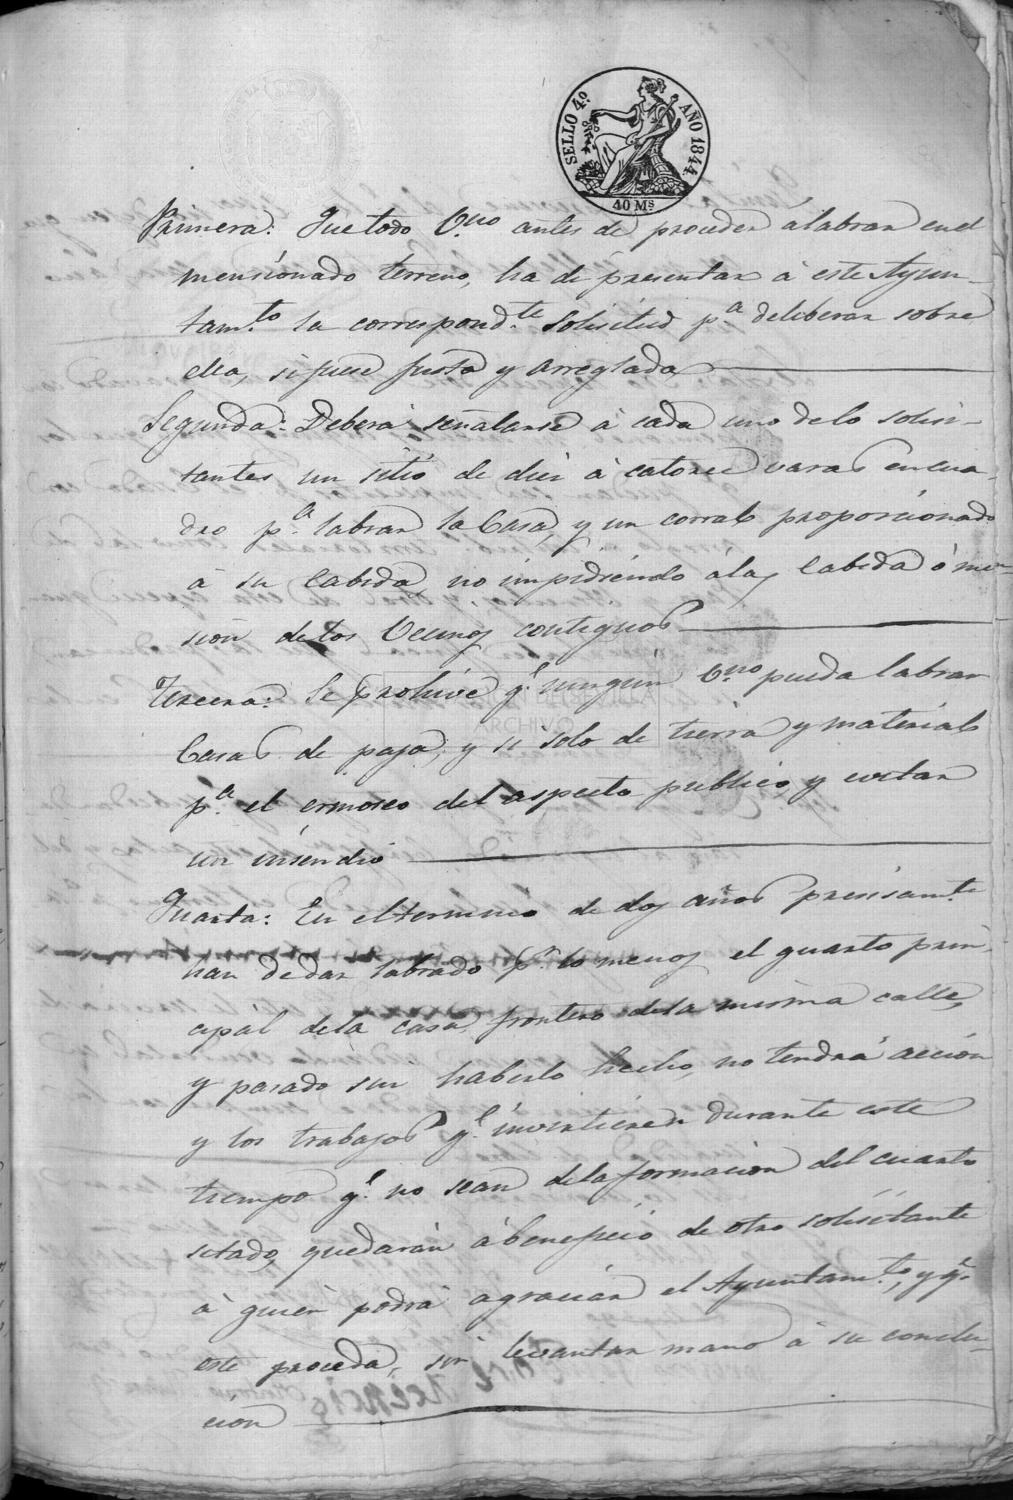 SELLO 4º. AÑO 1844.
40 Ms
Primera: Que todo Vno antes de proceder á labrar en el
mensionado terreno, ha de presentar á este Ayun-
tam.to la correspond.te solisitud p.a deliberar sobre
ella, si fuese justa y arreglada
Segunda: Deberá señalarse á cada uno de lo solisi-
tantes un sitio de dies á catorce varas en cua-
dro p.a labrar la Casa, y un corral proporcionado
á su cabida, no impidiendo á la cabida ó men-
sión de los Vecinos contiguos
Tercera: Se prohive q.e ningún Vno pueda labrar
Casas de paja, y si solo de tierra y materiales
p.a el ermoseo del aspecto publico, y evitar
un insendio
Quarta: En el termino de dos años presisam.te
han de dar labrado p.r lo menos el quarto prin-
cipal de la casa, frontero de la misma calle,
y pasado sin haberlo hecho, no tendrá acción
y los trabajos q.e invirtieren durante este
tiempo q.e no sean de la formacion del cuarto
sitado, quedarán á benefício de otro solisitante
á quien podrá agraciar el Ayuntam.to, y q.e
este proceda, sin levantar mano á su conclu-
ción
DIPUTACIÓN DE SEVILLA
ARCHIVO